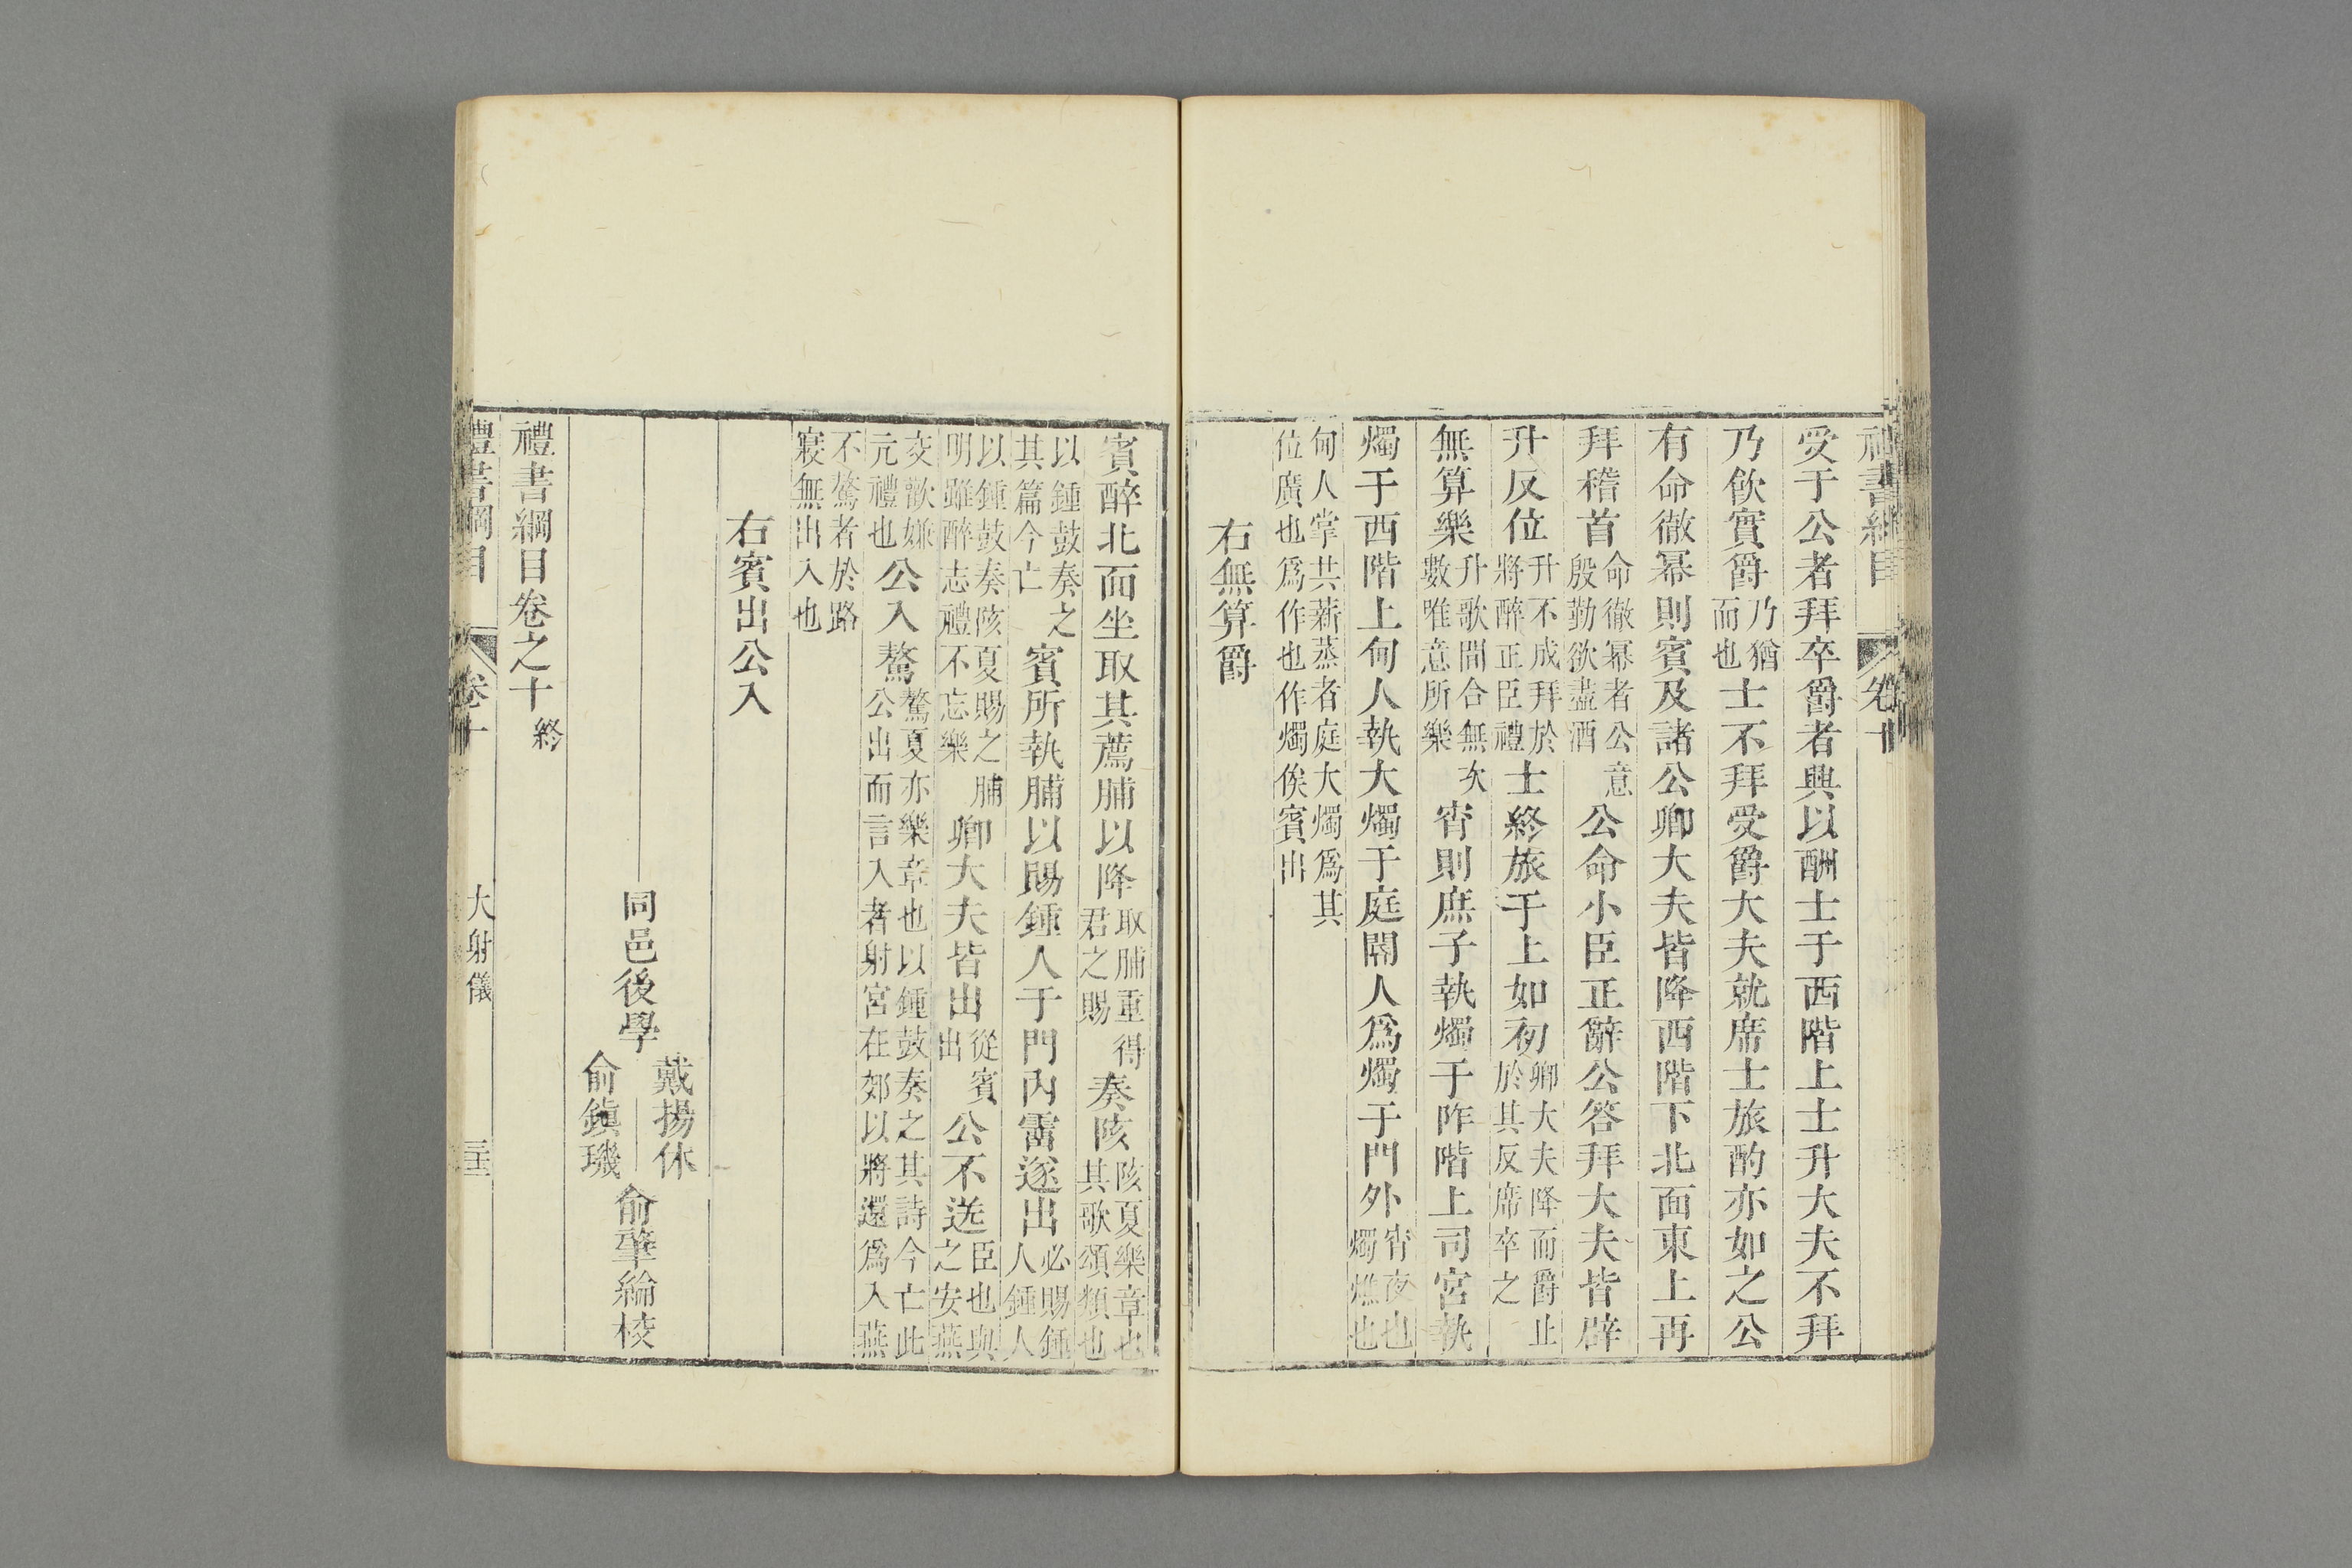 禮書綱目 卷十
受于公者拜卒爵者興以酬士于西階上士升大夫不拜
乃飲實爵乃猶而也士不拜受爵大夫就席士旅酌亦如之公
有命徹冪則賓及諸公卿大夫皆降西階下北面東上再
拜稽首命徹冪者公意殷勤欲盡酒公命小臣正辭公答拜大夫皆辟
升反位升不成拜於將醉正臣禮士終旅于上如初卿大夫降而爵止於其反席卒之
無算樂升歌間合無次數唯意所樂宵則庶子執燭于阼階上司宮執
燭于西階上甸人執大燭于庭閽人爲燭于門外宵夜也燭燋也
甸人掌共薪蒸者庭大燭爲其位廣也爲作也作燭俟賓出
右無算爵
賓醉北面坐取其薦脯以降取脯重得君之賜奏陔陔夏樂章也其歌頌類也
以鍾鼓奏之其篇今亡賓所執脯以賜鍾人于門內霤遂出必賜鍾人鍾人
以鍾鼓奏陔夏賜之脯明雖醉志禮不忘樂卿大夫皆出從賓出公不送臣也與之安燕
交歡嫌亢禮也公入驁驁夏亦樂章也以鍾鼓奏之其詩今亡此公出而言入者射宮在郊以將還爲入燕
不驁者於路寢無出入也
右賓出公入
同邑後學戴揚休俞鎮璣俞肇綸校
禮書綱目卷之十終
禮書綱目 卷十 大射儀